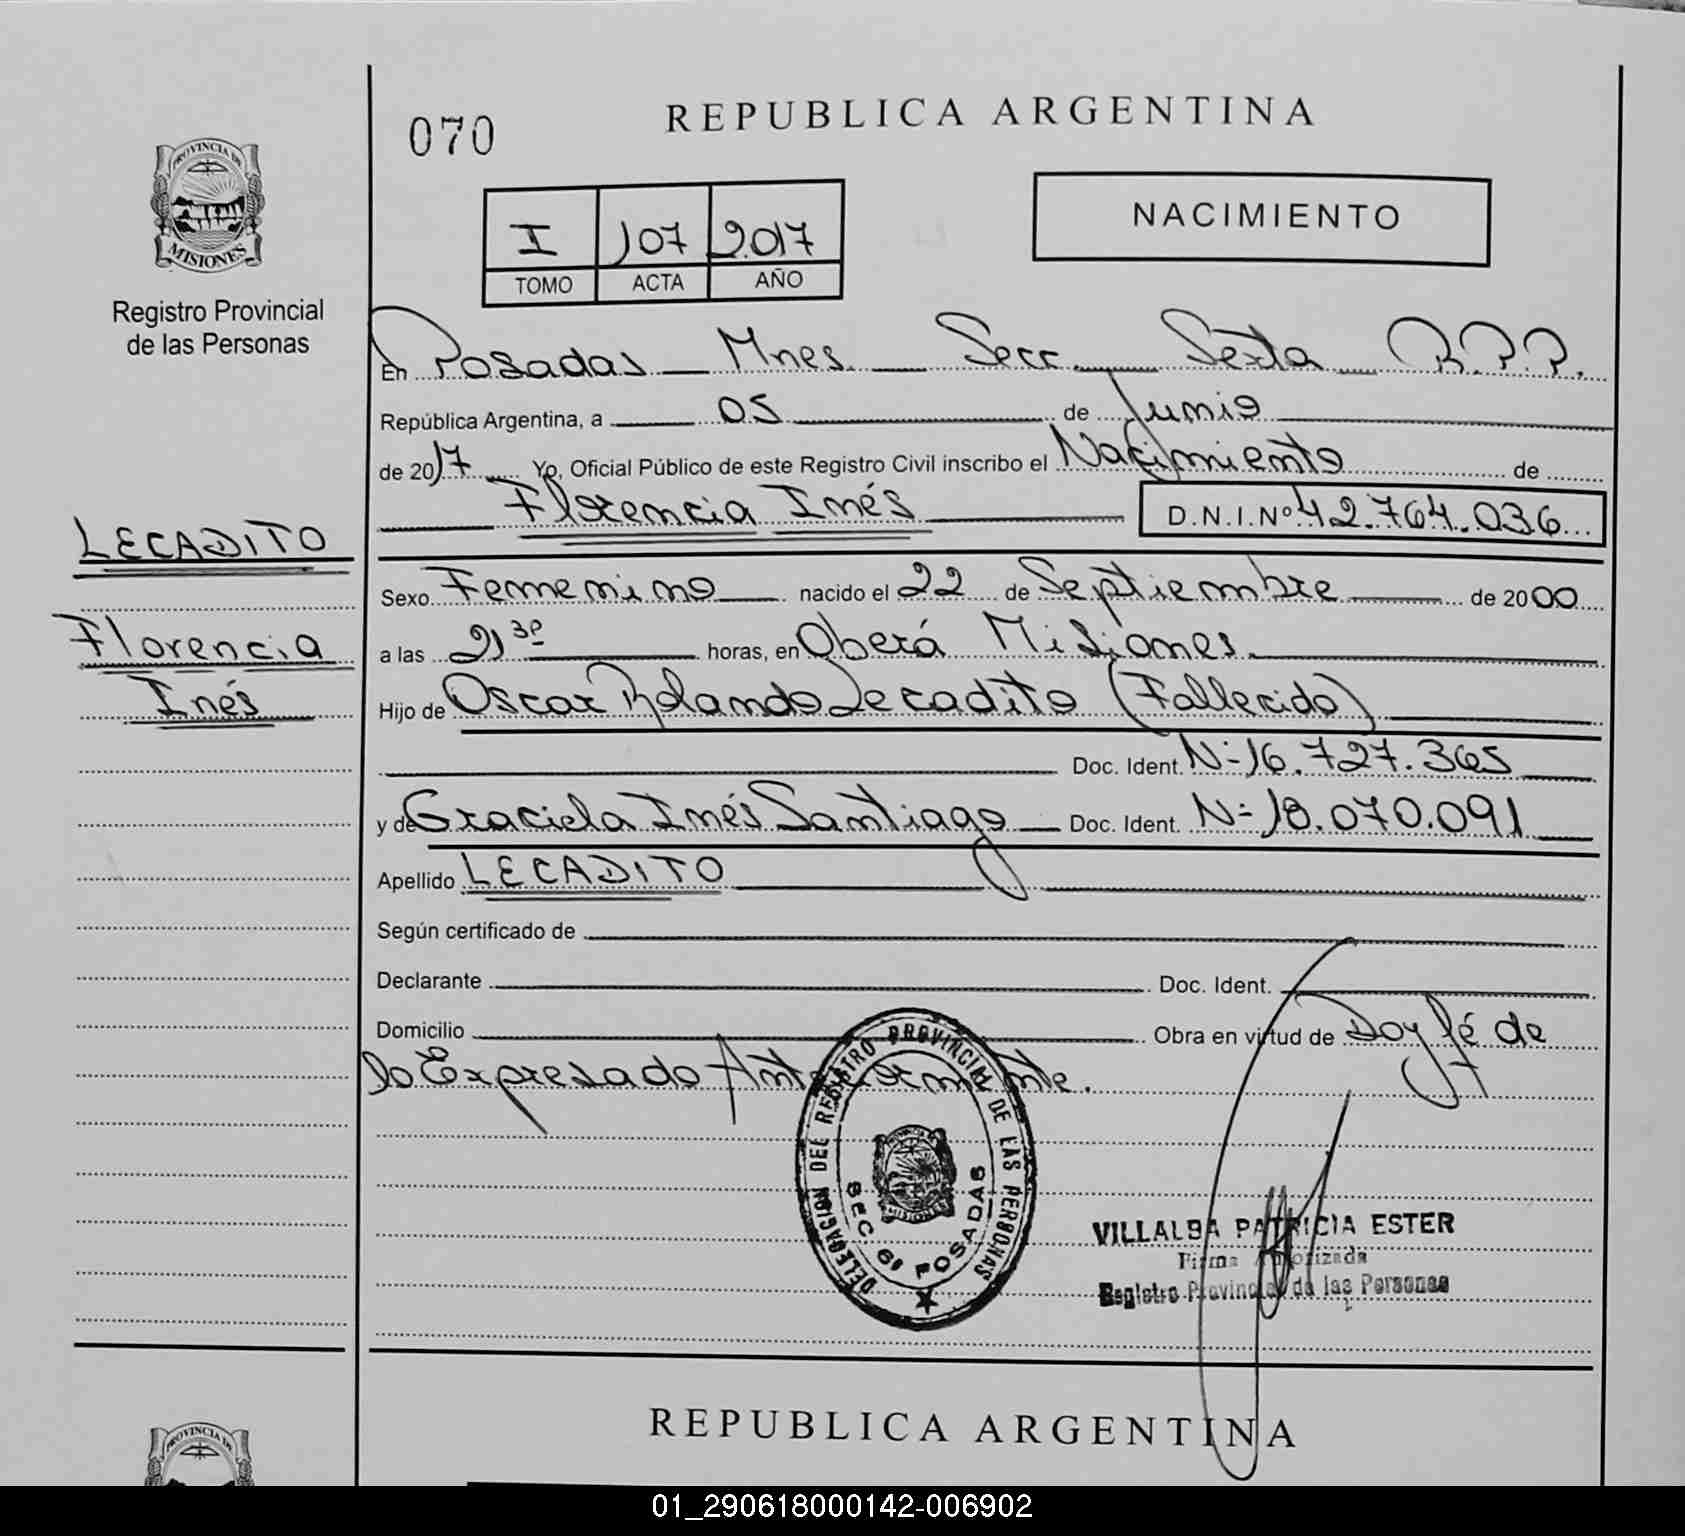 070
REPUBLICA ARGENTINA
NACIMIENTO
I 107 2017
TOMO ACTA AÑO
PROVINCIA DE
MISIONES
Registro Provincial
de las Personas
En Posadas Mnes. Secc. Sexta R.P.P.
República Argentina, a 05 de Junio
de 2017 Yo, Oficial Público de este Registro Civil inscribo el Nacimiento de
Florencia Inés D.N.I.Nº 42.764.036
LECADITO
Florencia
Inés
Sexo Femenino nacido el 22 de Septiembre de 2000
a las 21 30 horas, en Oberá Misiones
Hijo de Oscar Rolando Lecadito (Fallecido)
Doc. Ident. Nº 16.727.365
y de Graciela Inés Santiago Doc. Ident. Nº 18.070.091
Apellido LECADITO
Según certificado de
Declarante Doc. Ident.
Domicilio Obra en virtud de Doy fé de
lo Expresado Anteriormente.
DELEGACION DEL REGISTRO PROVINCIAL DE LAS PERSONAS
MISIONES
SEC 6ª POSADAS
VILLALBA PATRICIA ESTER
Firma Autorizada
Registro Provincial de las Personas
PROVINCIA DE
REPUBLICA ARGENTINA
01_290618000142-006902